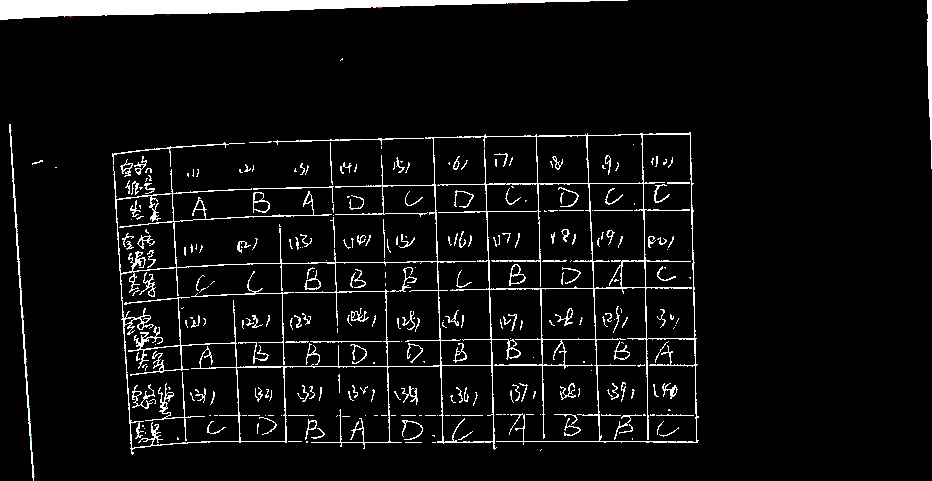 空格编号 (1) (2) (3) (4) (5) (6) (7) (8) (9) (10)
答案 A B A D C D C. D C. C
空格编号 (11) (12) (13) (14) (15) (16) (17) (18) (19) (20)
答案 C C B B B C B D A C.
空格编号 (21) (22) (23) (24) (25) (26) (27) (28) (29) (30)
答案 A B B D. D. B B. A. B A
空格编号 (31) (32) (33) (34) (35) (36) (37) (38) (39) (40)
答案. C D B A D. C A B B C